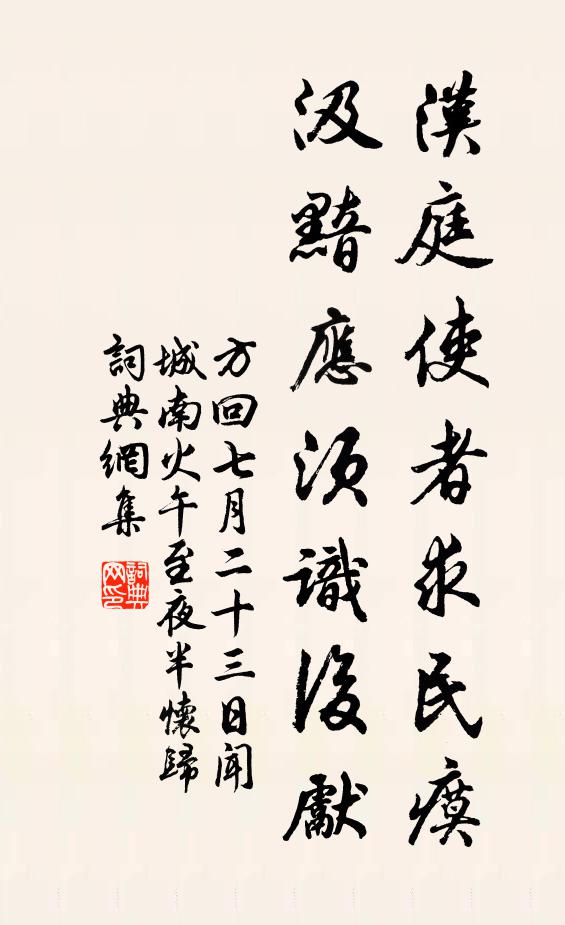 漢庭使者求民瘼
汲黯應須識後獻
方回七月二十三日聞
城南火午至夜半懷歸
詞典網集
詞典
网印